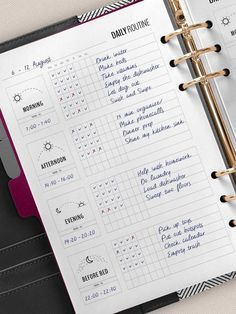 DAILY ROUTINE
6 - 12 August
MORNING
7:00 - 7:40
Drink water
Make beds
Take vitamins
Empty the dishwasher
Let dog out
Swish and Swipe
AFTERNOON
14:10 - 14:50
15 min organize
Make phonecalls
Dinner prep
Shine my kitchen sink
EVENING
19:20 - 20:20
Help with homework
Do laundry
Load dishwasher
Sweep two floors
BEFORE BED
22:00 - 22:30
Pick up toys
Put out hotspots
Check calendar
Empty trash